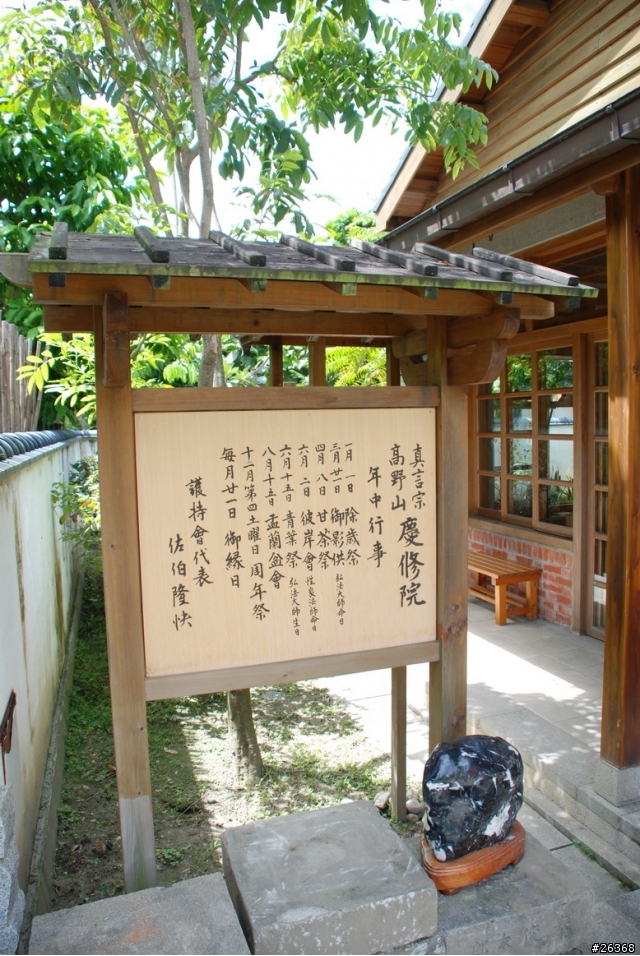 真言宗
高野山 慶修院
年中行事
一月一日 除歳祭
三月廿一日 御影供 弘法大師命日
四月八日 甘茶祭
六月二日 彼岸會
六月十五日 青葉祭 弘法大師生日
八月十五日 盂蘭盆會
十一月第四土曜日 周年祭
毎月廿一日 御縁日
護持會代表
佐伯隆快
#26368